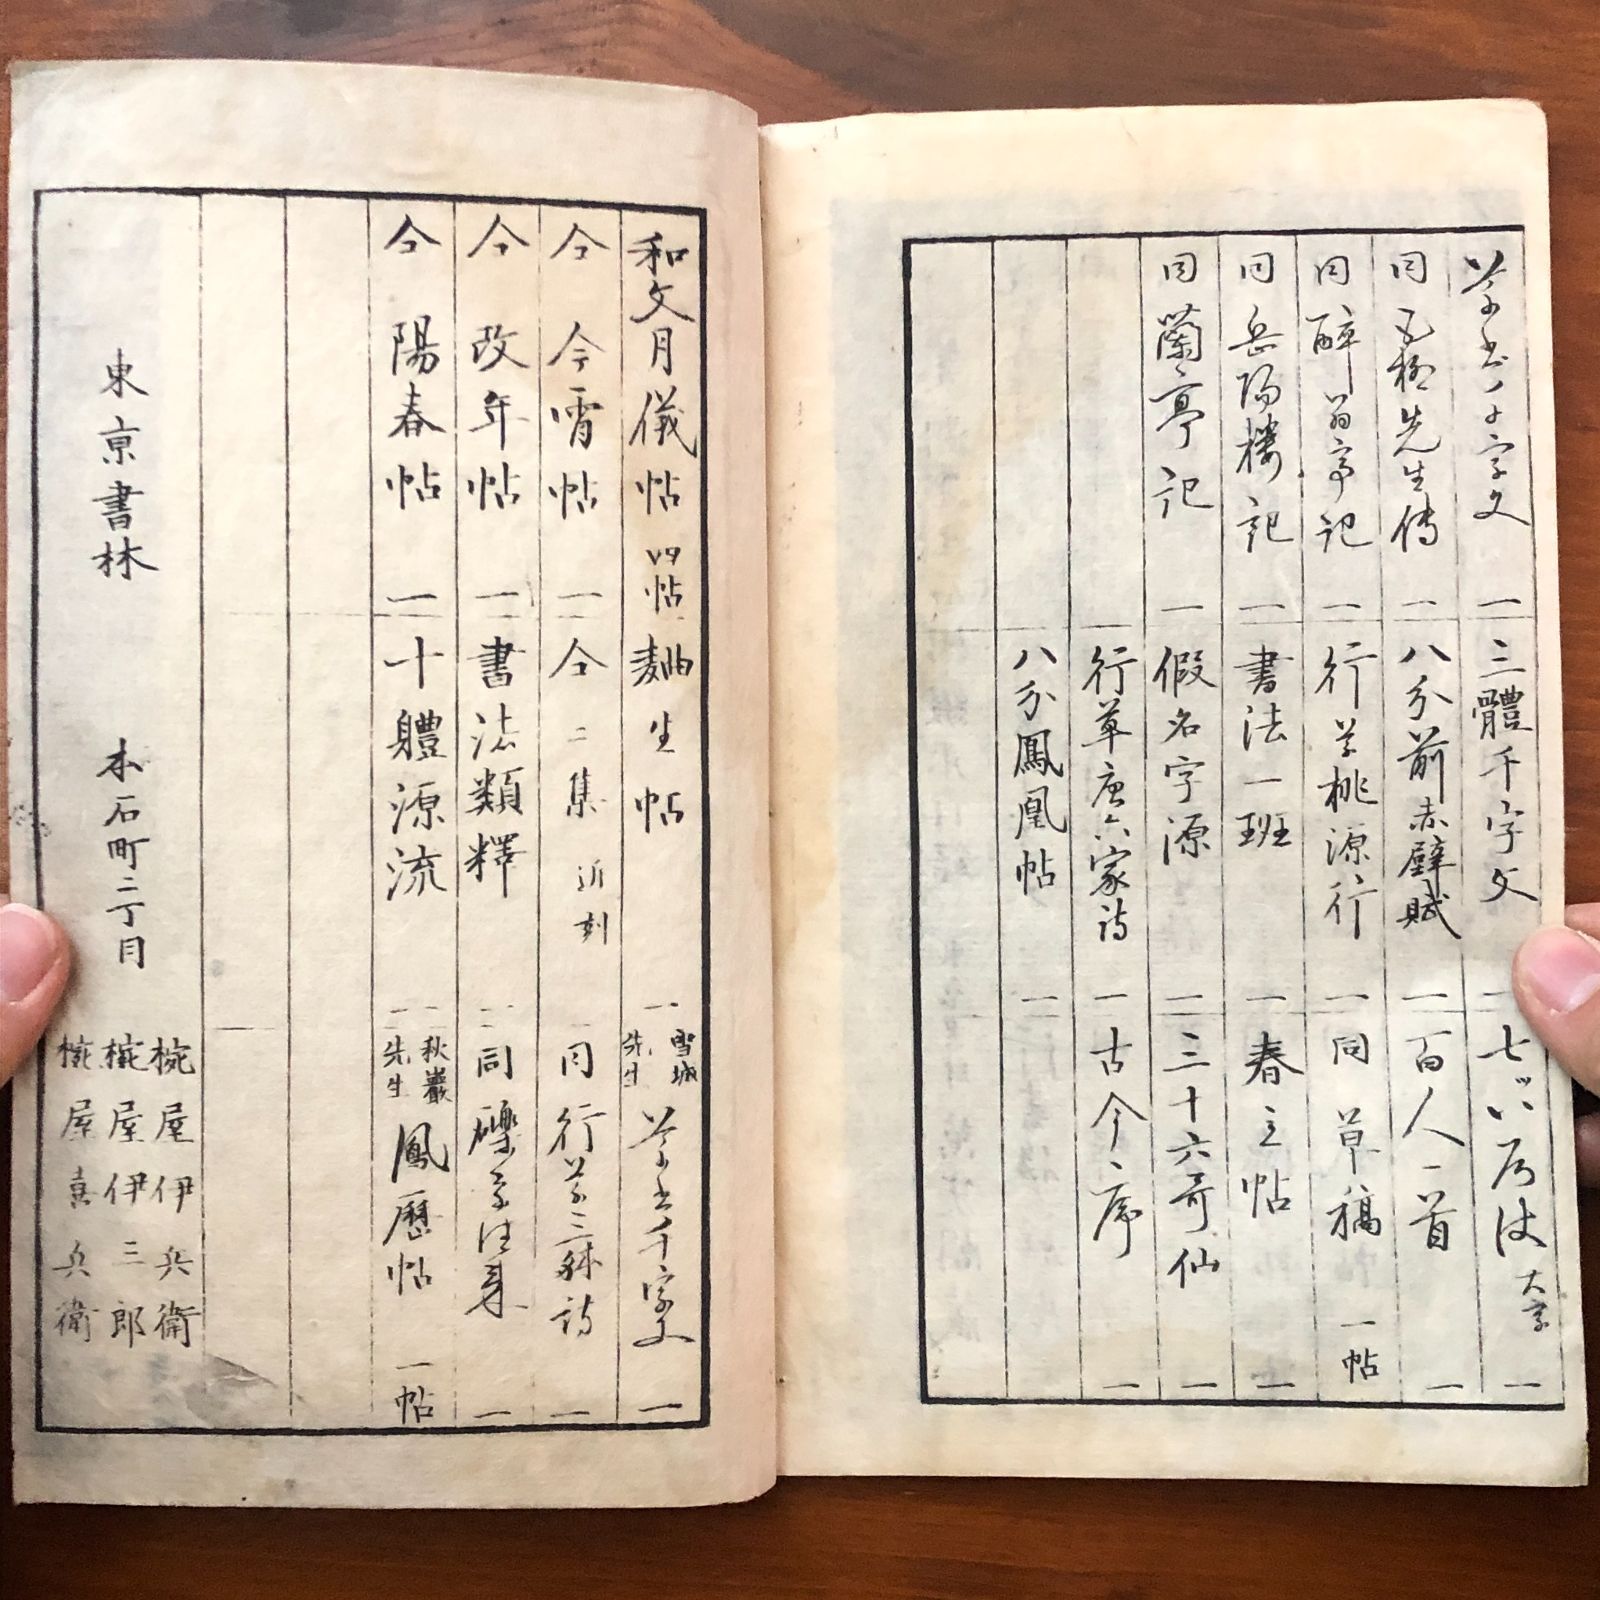 草書千字文 一
同 五柳先生傳 一
同 醉翁亭記 一
同 岳陽樓記 一
同 蘭亭記 一
三體千字文
八分前赤壁賦 一
行草桃源行 一
書法一班 一
假名字源 一
行草唐六家詩 一
八分鳳凰帖 一
七 大字 一
百人一首 一
同 草稿 一帖
春之帖 一
三十六哥仙 一
古今序 一
和文月儀帖 四帖
仝 今宵帖 一
仝 改年帖 一
仝 陽春帖 一
麹生帖 一
仝 二集 近刻
書法類釋 二
十體源流 二
雪城先生 草書千字文 一
同 行草三躰詩 一
同 往来 一
秋巖先生 鳳暦帖 一帖
東京書林
本石町二丁目
椀屋伊兵衛
椀屋伊三郎
椀屋喜兵衛